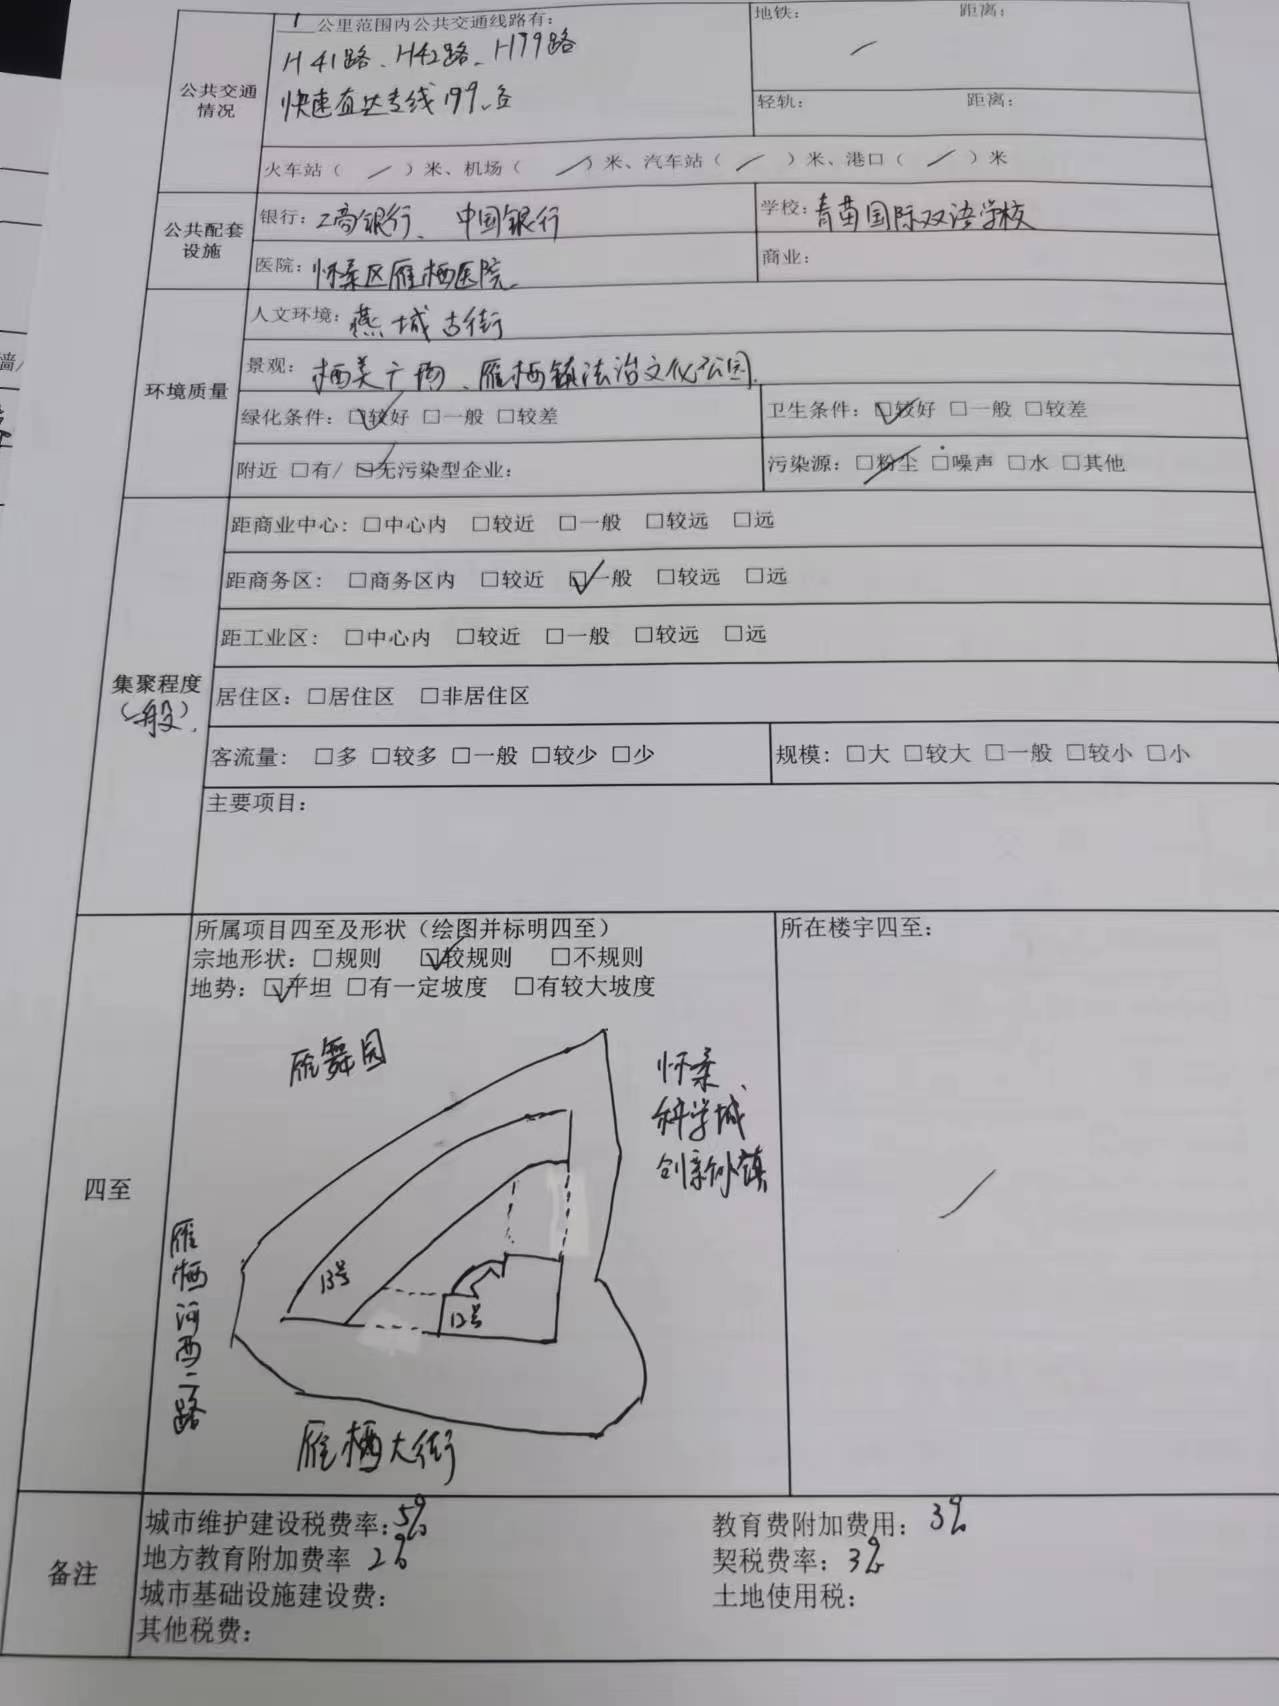 1 公里范围内公共交通线路有:
H41路、H42路、H99路
快速直达专线199.各
地铁: 距离:
/
公共交通情况
轻轨: 距离:
火车站( / )米、机场( / )米、汽车站( / )米、港口( / )米
公共配套设施
银行: 工商银行、中国银行
学校: 青苗国际双语学校
医院: 怀柔区雁栖医院.
商业:
环境质量
人文环境: 燕城古街
景观: 栖美广场、雁栖镇法治文化公园.
绿化条件: ☑较好 □一般 □较差
卫生条件: ☑较好 □一般 □较差
附近 □有/ ☑无污染型企业:
污染源: □粉尘 □噪声 □水 □其他
集聚程度
(一般).
距商业中心: □中心内 □较近 □一般 □较远 □远
距商务区: □商务区内 □较近 ☑一般 □较远 □远
距工业区: □中心内 □较近 □一般 □较远 □远
居住区: □居住区 □非居住区
客流量: □多 □较多 □一般 □较少 □少
规模: □大 □较大 □一般 □较小 □小
主要项目:
四至
所属项目四至及形状(绘图并标明四至)
宗地形状: □规则 ☑较规则 □不规则
地势: ☑平坦 □有一定坡度 □有较大坡度
雁舞园
怀柔
科学城
创新小镇
雁栖河西二路
13号
12号
雁栖大街
所在楼宇四至:
/
备注
城市维护建设税费率: 5%
教育费附加费用: 3%
地方教育附加费率 2%
契税费率: 3%
城市基础设施建设费:
土地使用税:
其他税费:
墙/